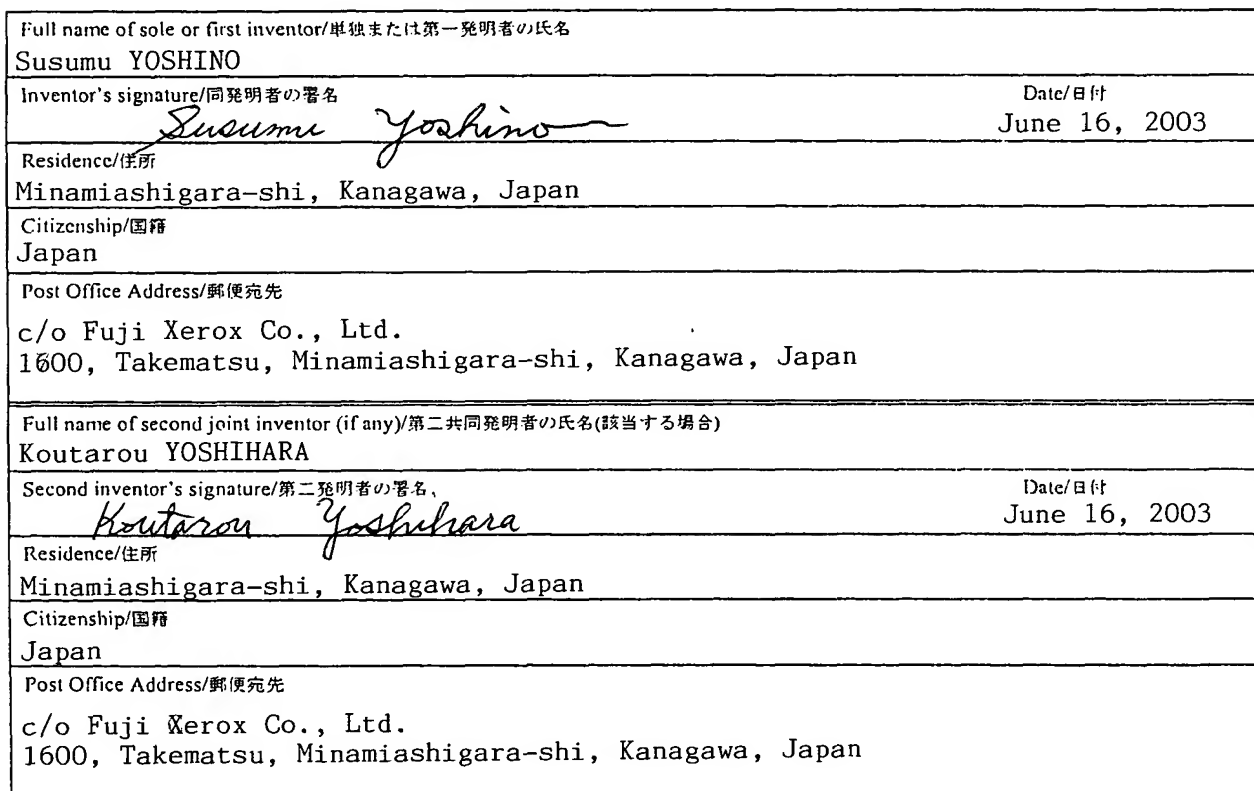 Full name of sole or first inventor/単独または第一発明者の氏名
Susumu YOSHINO
Inventor's signature/同発明者の署名
Date/日付
Susumu Yoshino
June 16, 2003
Residence/住所
Minamiashigara-shi, Kanagawa, Japan
Citizenship/国籍
Japan
Post Office Address/郵便宛先
c/o Fuji Xerox Co., Ltd.
1600, Takematsu, Minamiashigara-shi, Kanagawa, Japan
Full name of second joint inventor (if any)/第二共同発明者の氏名(該当する場合)
Koutarou YOSHIHARA
Second inventor's signature/第二発明者の署名
Date/日付
Koutarou Yoshihara
June 16, 2003
Residence/住所
Minamiashigara-shi, Kanagawa, Japan
Citizenship/国籍
Japan
Post Office Address/郵便宛先
c/o Fuji Xerox Co., Ltd.
1600, Takematsu, Minamiashigara-shi, Kanagawa, Japan